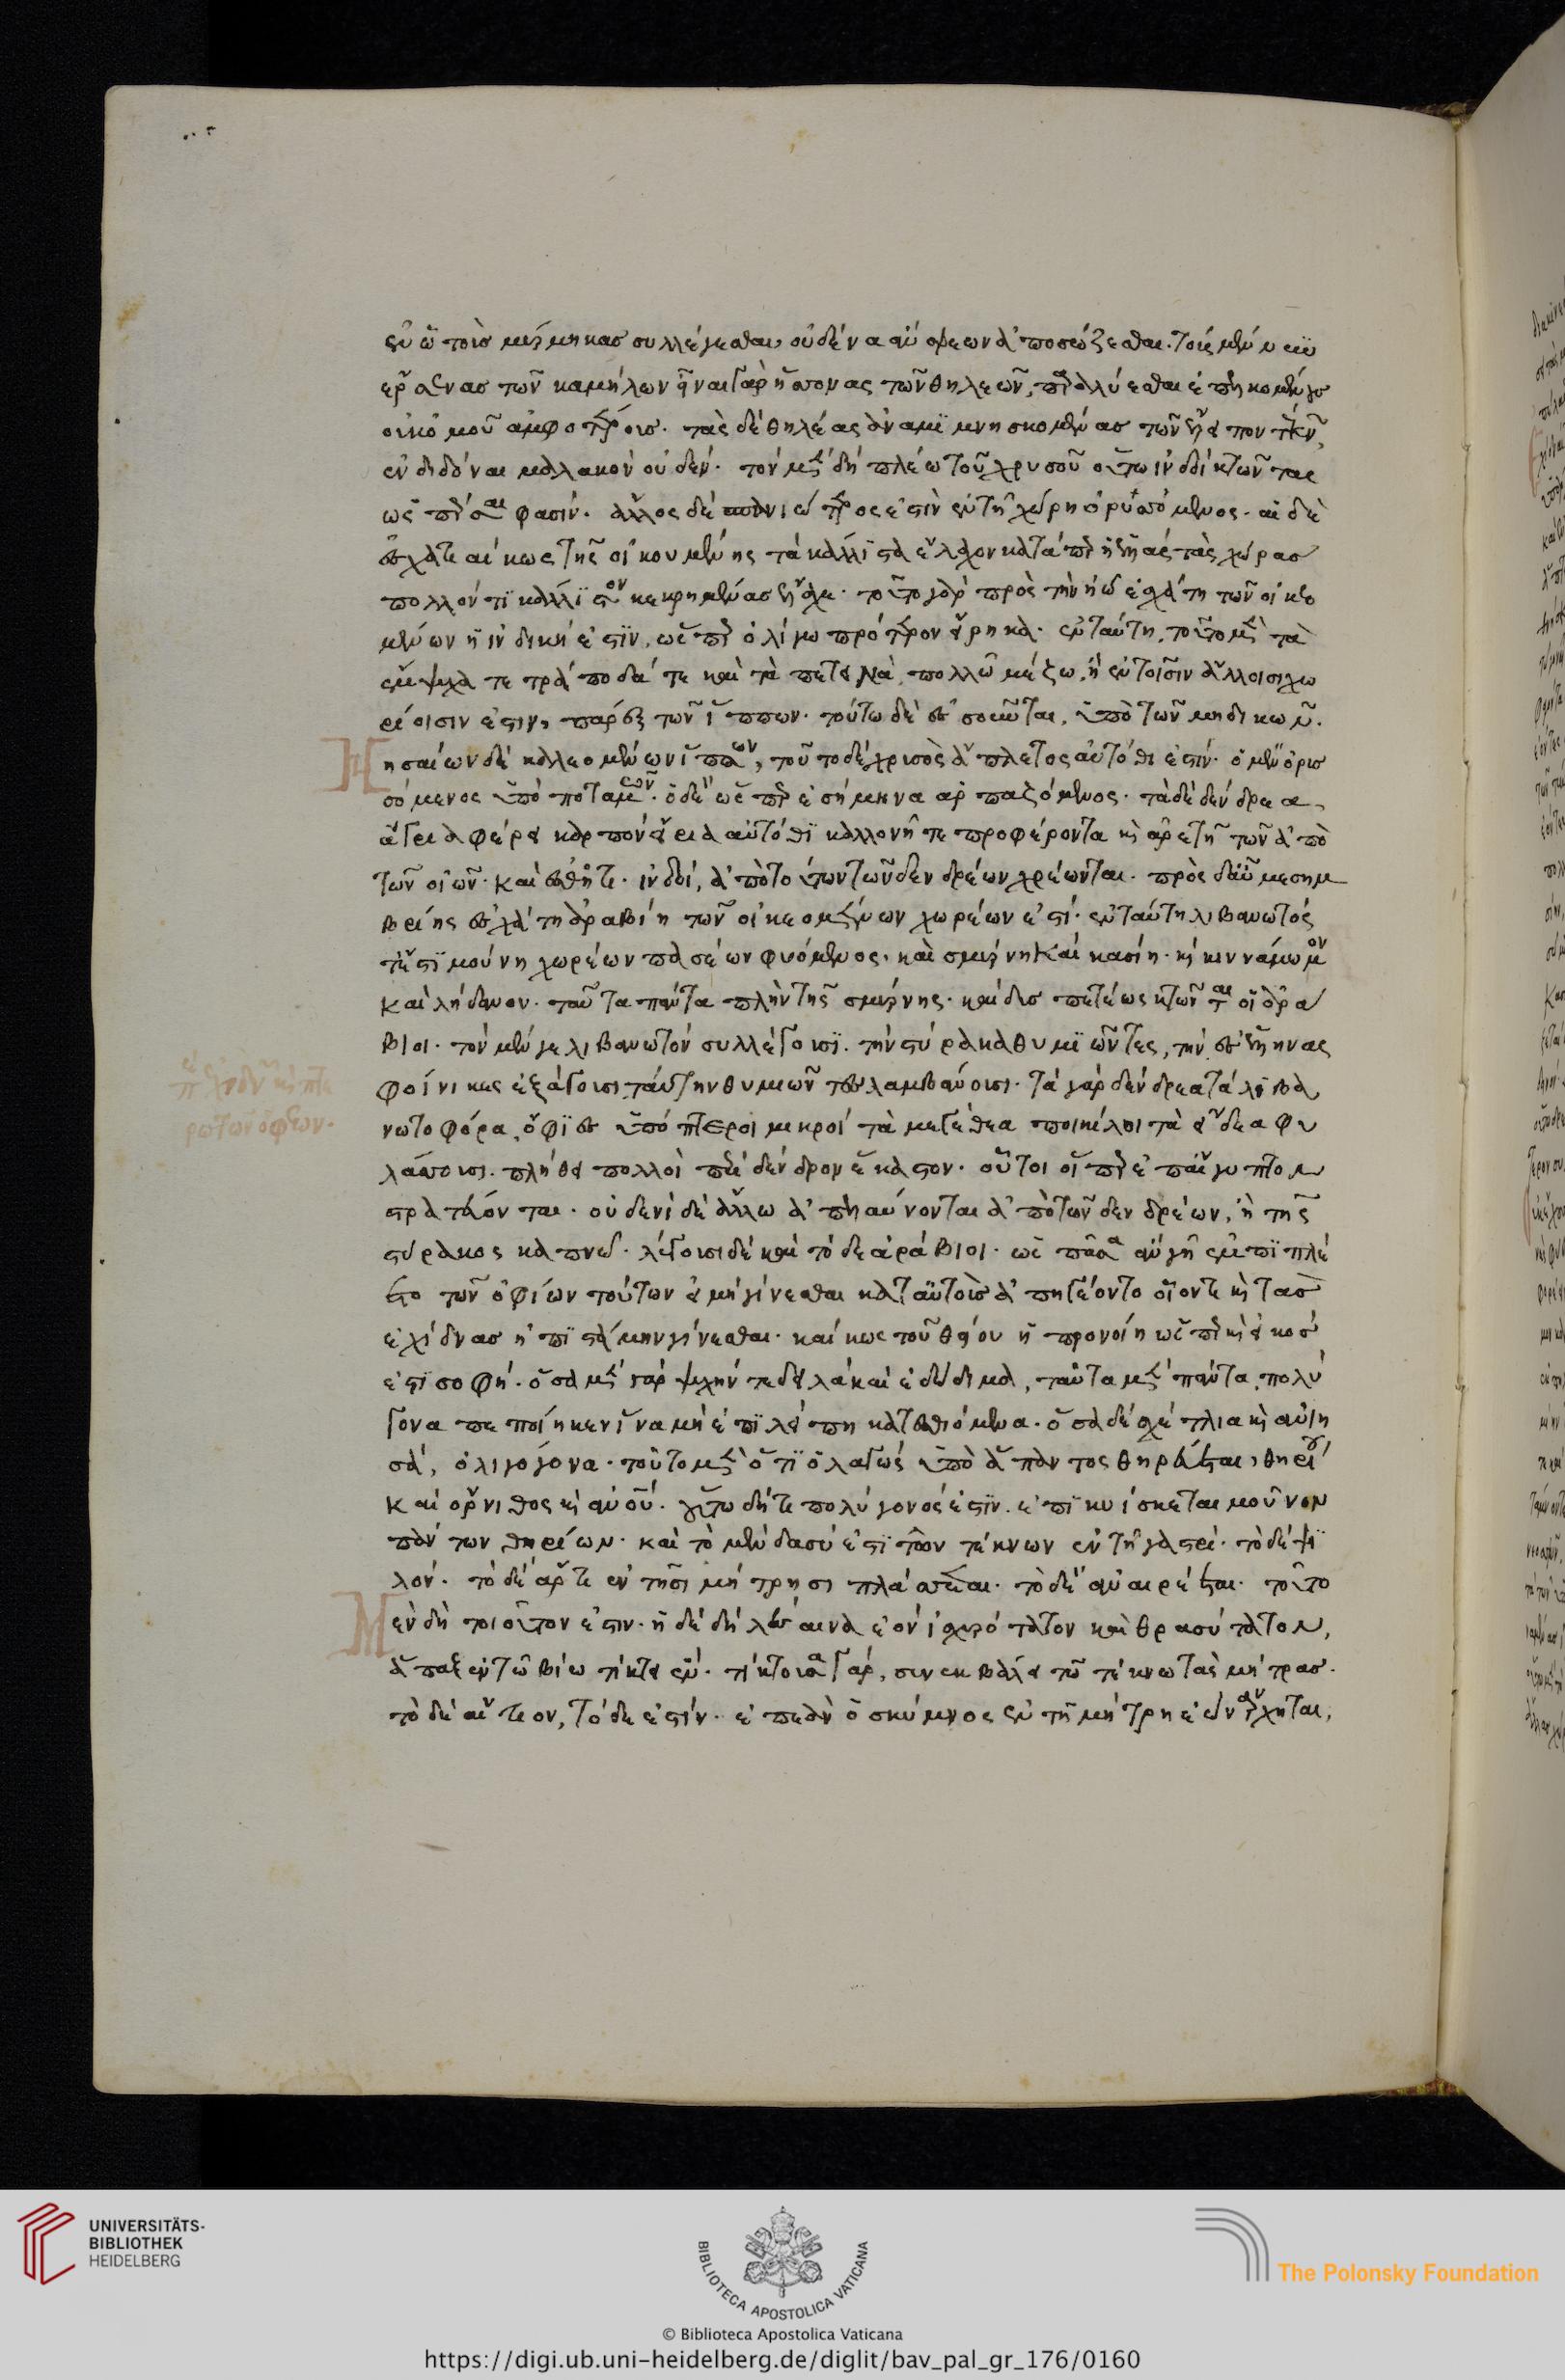 ἐν ᾧ τοὺς μύρμηκας συλλέγεσθαι, οὐδένα ἂν σφεων ἀποσώζεσθαι. τοὺς μέν νυν
ἔρσενας τῶν καμήλων εἶναι γὰρ ἥσσονας τῶν θηλεῶν, παραλύεσθαι ἐπελκομένους
οὐκ ὁμοῦ ἀμφοτέροις. τὰς δὲ θηλέας ἀναμιμνησκομένας τῶν ἔλιπον τέκνων,
ἐνδιδόναι μαλακὸν οὐδέν. τὸν μὲν δὴ πλέω τοῦ χρυσοῦ οὕτω ἰνδοὶ κτῶνται
ὡς πέρσαι φασίν. ἄλλος δὲ σπανιώτερος ἐστὶν ἐν τῇ χώρῃ ὀρυσσόμενος. αἱ δὲ
ἐσχατιαί κως τῆς οἰκουμένης τὰ κάλλιστα ἔλαχον κατάπερ ἡ ἑλλὰς τὰς χώρας
πολλόν τι κάλλιστον κεκρημένας ἔλαχε. τοῦτο γὰρ πρὸς τὴν ἠῶ ἐσχάτη τῶν οἰκεο
μένων ἡ ἰνδική ἐστϊν, ὡς περ ὀλίγω πρότερον εἴρηκα. ἐν ταύτη, τοῦτο μὲν τὰ
ἔμψυχα τετράποδά τε καὶ τὰ πετεινὰ, πολλῶ μέζω, ἢ ἐν τοῖσιν ἄλλοισι χω
ρίοισιν ἐστιν, παρὲξ τῶν ἵππων. τούτω δὲ ἑσσοῦται, ὑπὸ τῶν μηδικῶν.
νησαίων δὲ καλλεομένων ἵππων, τοῦτο δὲ χρισὸς ἄπλετος αὐτόθι ἐστίν. ὁ μὲν ὀρισ
σόμενος ὑπὸ ποταμῶν. ὁ δὲ ὡς περ ἐσήμηνα ἁρπαζόμενος. τὰ δὲ δένδρεα,
ἄγρια φέρει καρπὸν εἴρια αὐτόθϊ καλλονῆ τε προφέροντα καὶ ἀρετῆ τῶν ἀπὸ
τῶν οἰῶν. καὶ ἐσθῆτι. ἰνδοί, ἀπὸ τούτων τῶν δενδρέων χρέωνται. πρὸς δ' αὖ μεσημ
βρίης ἐσχάτη ἀραβίη τῶν οἰκεομένων χωρέων ἐστί. ἐν ταύτη λιβανωτός
τέ ἐστϊ μούνη χωρέων πασέων φυόμενος, καὶ σμύρνη καὶ κασίη. καὶ κιννάμωμον
καὶ λήδανον. ταῦτα πάντα πλὴν τῆς σμύρνης. καὶ δυσπετέως κτῶνται οἱ ἀρά
βιοι. τὸν μέν γε λιβανωτὸν συλλέγουσϊ. τὴν στύρακα θυμϊῶντες, τὴν ἐς ἕλληνας
φοίνικες ἐξάγουσι, ταύτην θυμιῶντες λαμβάνουσι. τὰ γὰρ δένδρεα τὰ λιβα
νωτοφόρα, ὄφϊες ὑπόπτεροι μικροί τὰ μεγέθεα ποικίλοι τὰ εἴδεα φυ
λάσσουσι. πλήθεϊ πολλοὶ περὶ δένδρον ἕκαστον. οὗτοι οἵπερ ἐπ' αἴγυπτον
στρατεύονται. οὐδενὶ δὲ ἄλλω ἀπελαύνονται ἀπὸ τῶν δενδρέων, ἢ τῆς
στύρακος καπνῶ. λέγουσι δὲ καὶ τόδε ἀράβιοι. ὡς πᾶσα ἂν γῆ ἐμπϊπλέ
ετο τῶν ὀφίων τούτων εἰ μὴ γίνεσθαι κατ' αὐτοὺς ἀπηγέοντο οἷόν τε καὶ τὰς
ἐχίδνας ἠπϊστάμην γίνεσθαι. καί κως τοῦ θείου ἡ προνοίη ὡς περ καὶ εἰκός
ἐστϊ σοφή. ὅσα μὲν γὰρ ψυχήν τε δειλὰ καὶ ἐδώδιμα, ταῦτα μὲν πάντα, πολύ
γονα πεποίηκεν ἵνα μὴ ἐπϊλείπη κατεσθιόμενα. ὅσα δὲ σχέτλια καὶ ἀνιη
ρά, ὀλιγόγονα. τοῦτο μὲν ὅτϊ ὁ λαγὼς ὑπὸ ἅπαντος θηρεύεται, θηρίου
καὶ ὄρνιθος καὶ ἀνθρώπου. οὕτω δή τι πολύγονός ἐστϊν. ἐπϊκυίσκεται μοῦνον
πάντων θηρίων. καὶ τὸ μὲν δασύ ἐστϊ τῶν τέκνων ἐν τῆ γαστρί. τὸ δὲ ψϊ
λόν. τὸ δὲ ἄρτι ἐν τῆσι μήτρησι πλάσσεται. τὸ δὲ ἀναιρέεται. τοῦτο
μὲν δὴ τοιοῦτον ἐστιν. ἡ δὲ δὴ λέαινα ἐὸν ἰσχυρότατον καὶ θρασύτατον,
ἅπαξ ἐν τῶ βίω τίκτει ἕν. τίκτουσα γάρ, συνεκβάλλει τῶ τέκνω τὰς μήτρας.
τὸ δὲ αἴτιον, τόδε ἐστίν. ἐπεὰν ὁ σκύμνος ἐν τῆ μήτρη ἐὼν ἄρχηται,
UNIVERSITÄTS-
BIBLIOTHEK
HEIDELBERG
BIBLIOTECA APOSTOLICA VATICANA
The Polonsky Foundation
© Biblioteca Apostolica Vaticana
https://digi.ub.uni-heidelberg.de/diglit/bav_pal_gr_176/0160